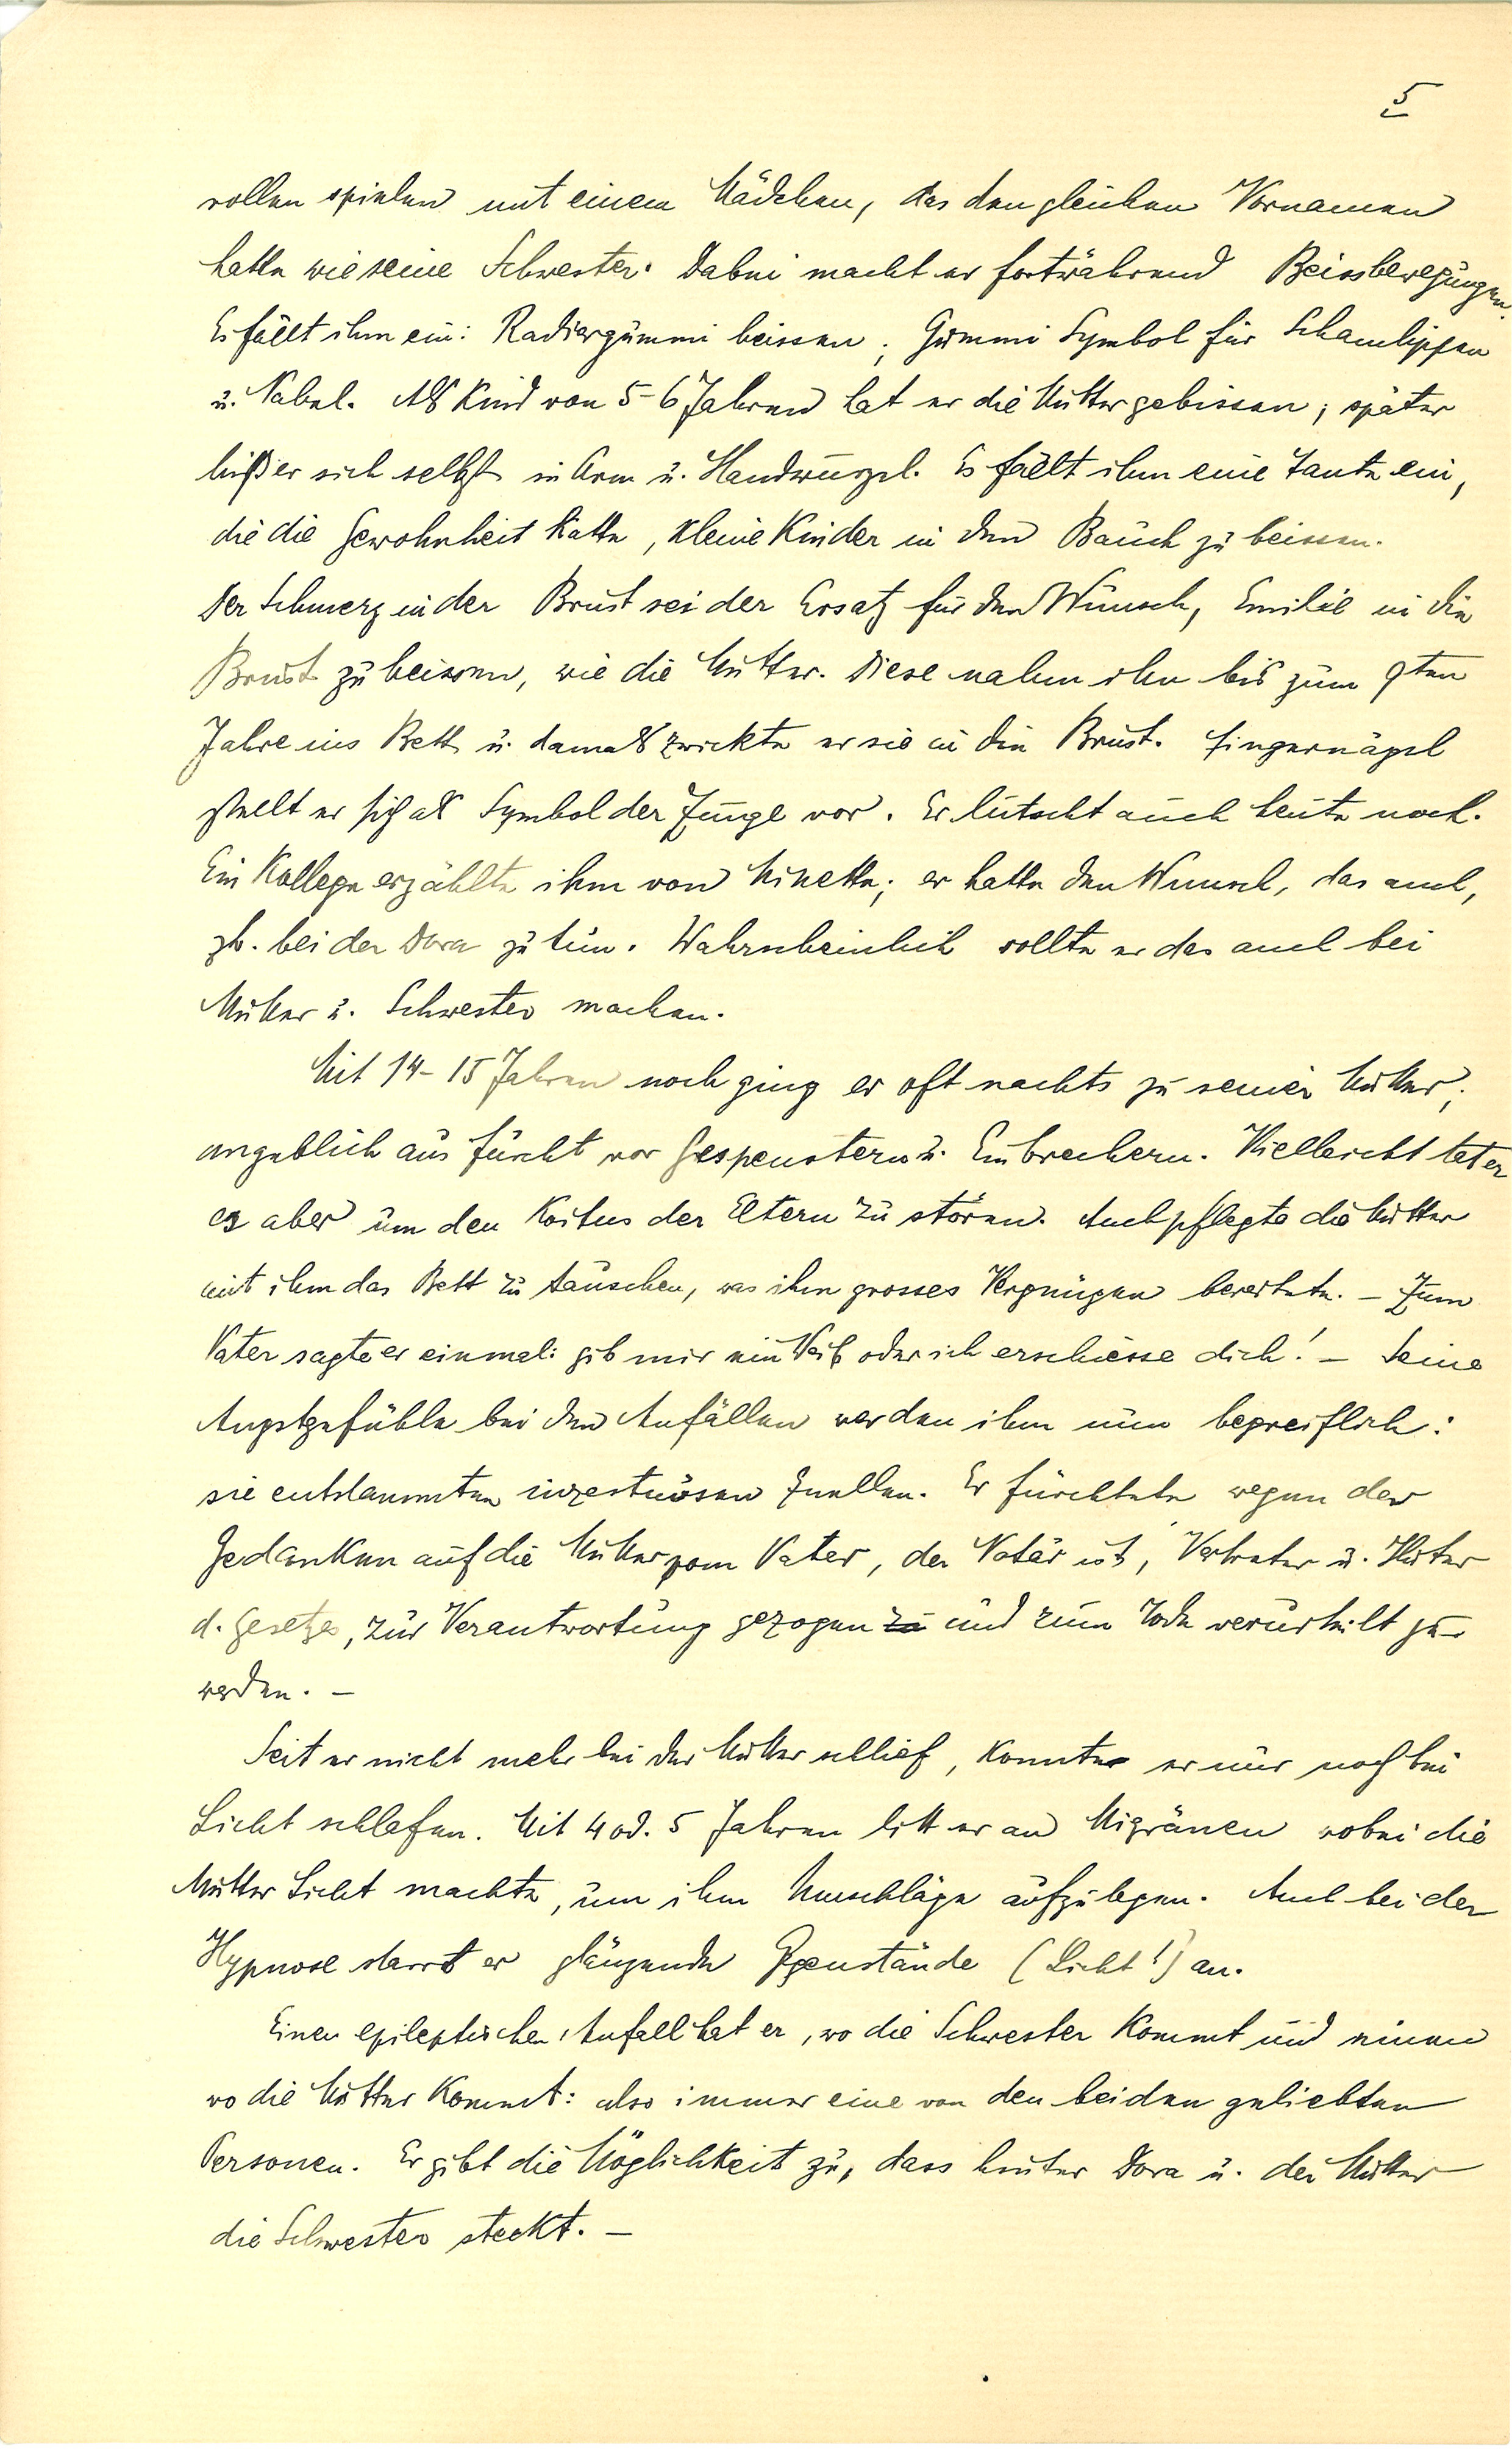 5
rollen spielen mit einem Mädchen, das den gleichen Vornamen
hatte wie seine Schwester. Dabei macht er fortwährend Beissbewegungen.
Es fällt ihm ein: Radiergummi beissen; Gummi Symbol für Schamlippen
u. Nabel. Als Kind von 5-6 Jahren hat er die Mutter gebissen; später
biß er sich selbst in Arm u. Handwurzel. Es fällt ihm eine Tante ein,
die die Gewohnheit hatte, kleine Kinder in den Bauch zu beissen.
Der Schmerz in der Brust sei der Ersatz für den Wunsch, Emilie in die
Brust zu beissen, wie die Mutter. Diese nahm ihn bis zum 9ten
Jahre ins Bett u. damals zwickte er sie in die Brust. Fingernägel
stellt er sich als Symbol der Zunge vor. Er lutscht auch heute noch.
Ein Kollege erzählte ihm von Minette; er hatte den Wunsch, das auch,
zb. bei der Dora zu tun. Wahrscheinlich wollte er das auch bei
Mutter u. Schwester machen.
Mit 14-15 Jahren noch ging er oft nachts zu seiner Mutter;
angeblich aus Furcht vor Gespenstern u. Einbrechern. Vielleicht tat er
es aber um den Koitus der Eltern zu stören. Auch pflegte die Mutter
mit ihm das Bett zu tauschen, was ihm grosses Vergnügen bereitete. – Zum
Vater sagte er einmal: gib mir ein Weib oder ich erschiesse dich! – Seine
Angstgefühle bei den Anfällen werden ihm nun begreiflich:
sie entstammten inzestuösen Quellen. Er fürchtete wegen der
Gedanken auf die Mutter vom Vater, der Notar ist, Vertreter u. Hüter
d. Gesetzes, zur Verantwortung gezogen zu und zum Tode verurteilt zu
werden. –
Seit er nicht mehr bei der Mutter schlief, konnte er nur noch bei
Licht schlafen. Mit 4 od. 5 Jahren litt er an Migränen wobei die
Mutter Licht machte, um ihm Umschläge aufzulegen. Auch bei der
Hypnose starrt er glänzende Gegenstände (Licht!) an.
Einen epileptischen Anfall hat er, wo die Schwester kommt und einen
wo die Mutter kommt: also immer eine von den beiden geliebten
Personen. Er gibt die Möglichkeit zu, dass hinter Dora u. der Mutter
die Schwester steckt. –